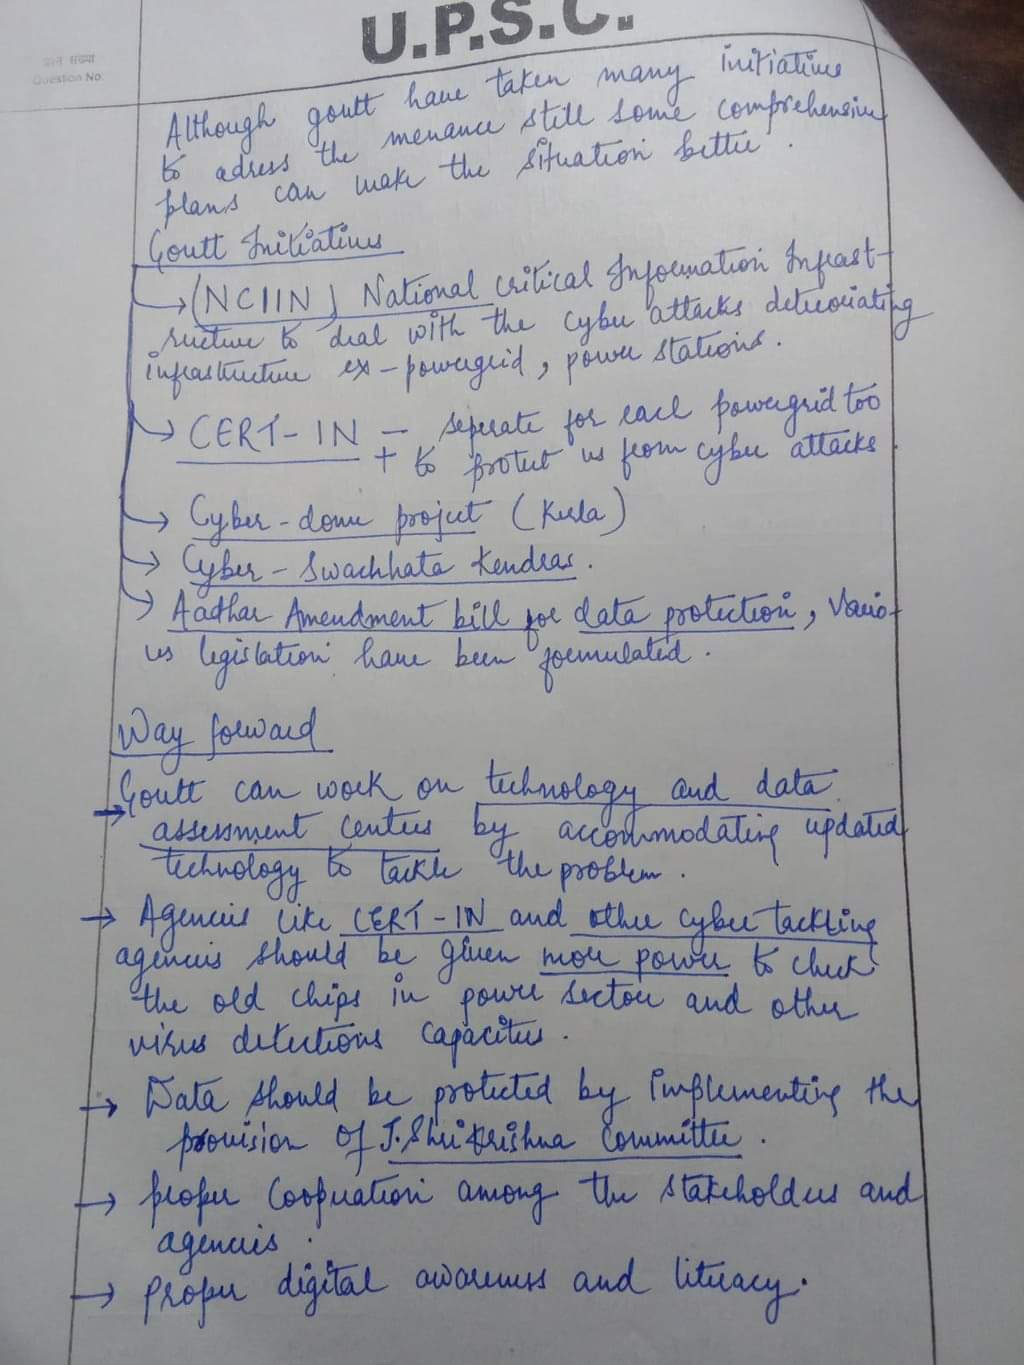 U.P.S.C.
प्रश्न संख्या
Question No.
Although govtt have taken many initiatives
to adress the menance still some comprehensive
plans can make the situation better.
Govtt Initiatives
→ (NCIIN) National critical Information Infrast-
ructure to deal with the cyber attacks deteoriating
infrastructure ex - powergrid, power stations.
→ CERT-IN – seperate for each powergrid too
+ to protect us from cyber attacks.
→ Cyber-dome project (Kerla)
→ Cyber-Swachhata Kendras.
→ Aadhar Amendment bill for data protection, Vario-
us legislation have been formulated.
Way forward
→ Govtt can work on technology and data
assessment centres by accommodating updated
technology to tackle the problem.
→ Agencies like CERT-IN and other cyber tackling
agencies should be given more power to check
the old chips in power sector and other
virus detections capacites.
→ Data should be protected by implementing the
provision of J. Shri Krishna Committee.
→ proper Cooperation among the stakeholders and
agencies.
→ proper digital awareness and literacy.